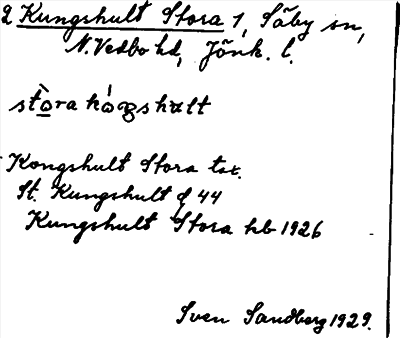 2 Kungshult Stora 1, Säby sn,
N. Vedbo hd, Jönk. l.
Kongshult Stora tax.
St. Kungshult d 44
Kungshult Stora hb 1926
Sven Sandberg 1929.